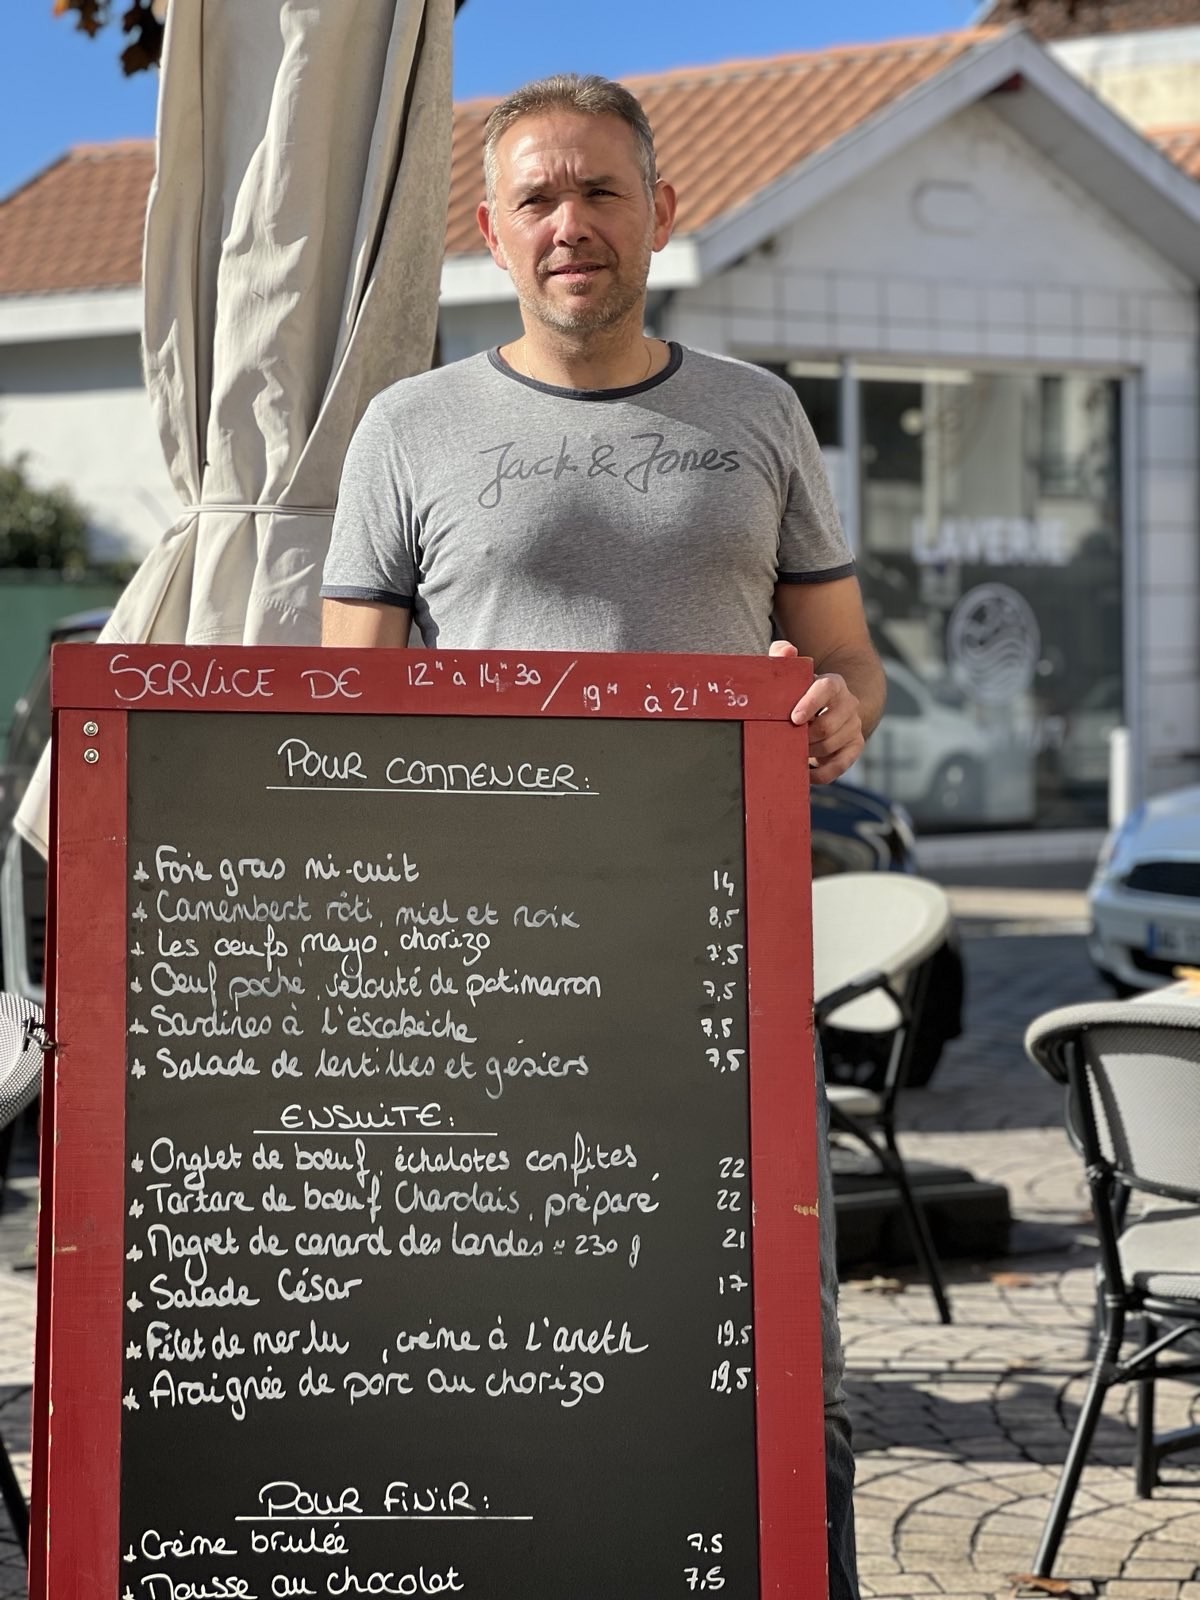 Jack & Jones
LAVERIE
SERVICE DE 12H à 14H30 / 19H à 21H30
POUR COMMENCER:
* Foie gras mi-cuit 14
* Camembert rôti, miel et noix 8,5
* Les œufs mayo, chorizo 7,5
* Oeuf poché, velouté de potimarron 7,5
* Sardines à l'éscabèche 7,5
* Salade de lentilles et gésiers 7,5
ENSUITE:
* Onglet de bœuf, échalotes confites 22
* Tartare de bœuf Charolais, préparé 22
* Magret de canard des Landes ≈ 230 g 21
* Salade César 17
* Filet de merlu, crème à l'aneth 19.5
* Araignée de porc au chorizo 19.5
POUR FINIR:
* Crème brulée 7.5
* Mousse au chocolat 7,5